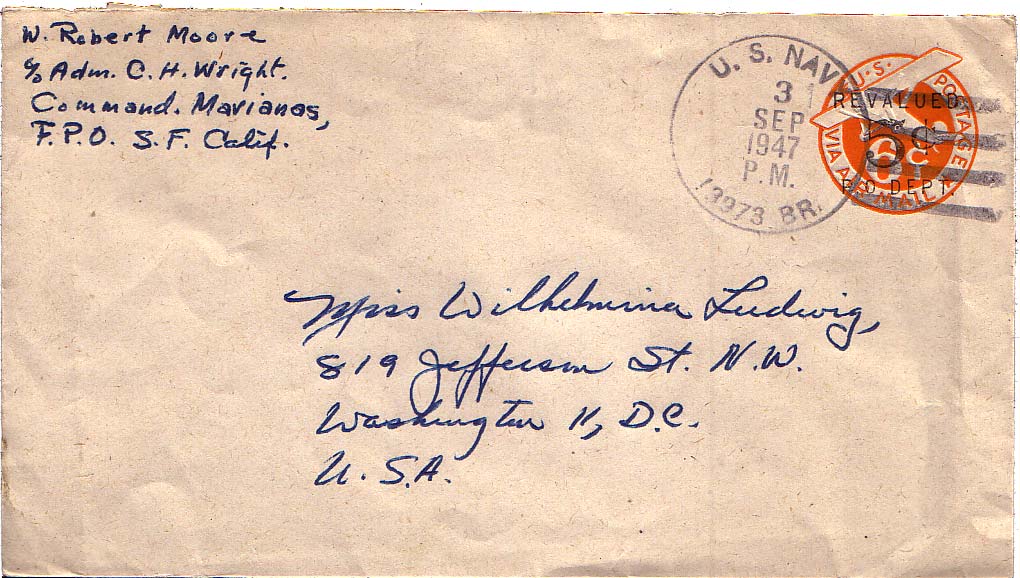 W. Robert Moore
c/o Adm. C. H. Wright.
Command. Marianas,
F.P.O. S.F. Calif.
U. S. NAVY
3 1
SEP
1947
P.M.
13973 BR.
U.S. POSTAGE
REVALUED
5¢
6¢
P.O. DEPT.
VIA AIR MAIL
Miss Wilhelmina Ludwig,
819 Jefferson St. N.W.
Washington 11, D.C.
U.S.A.